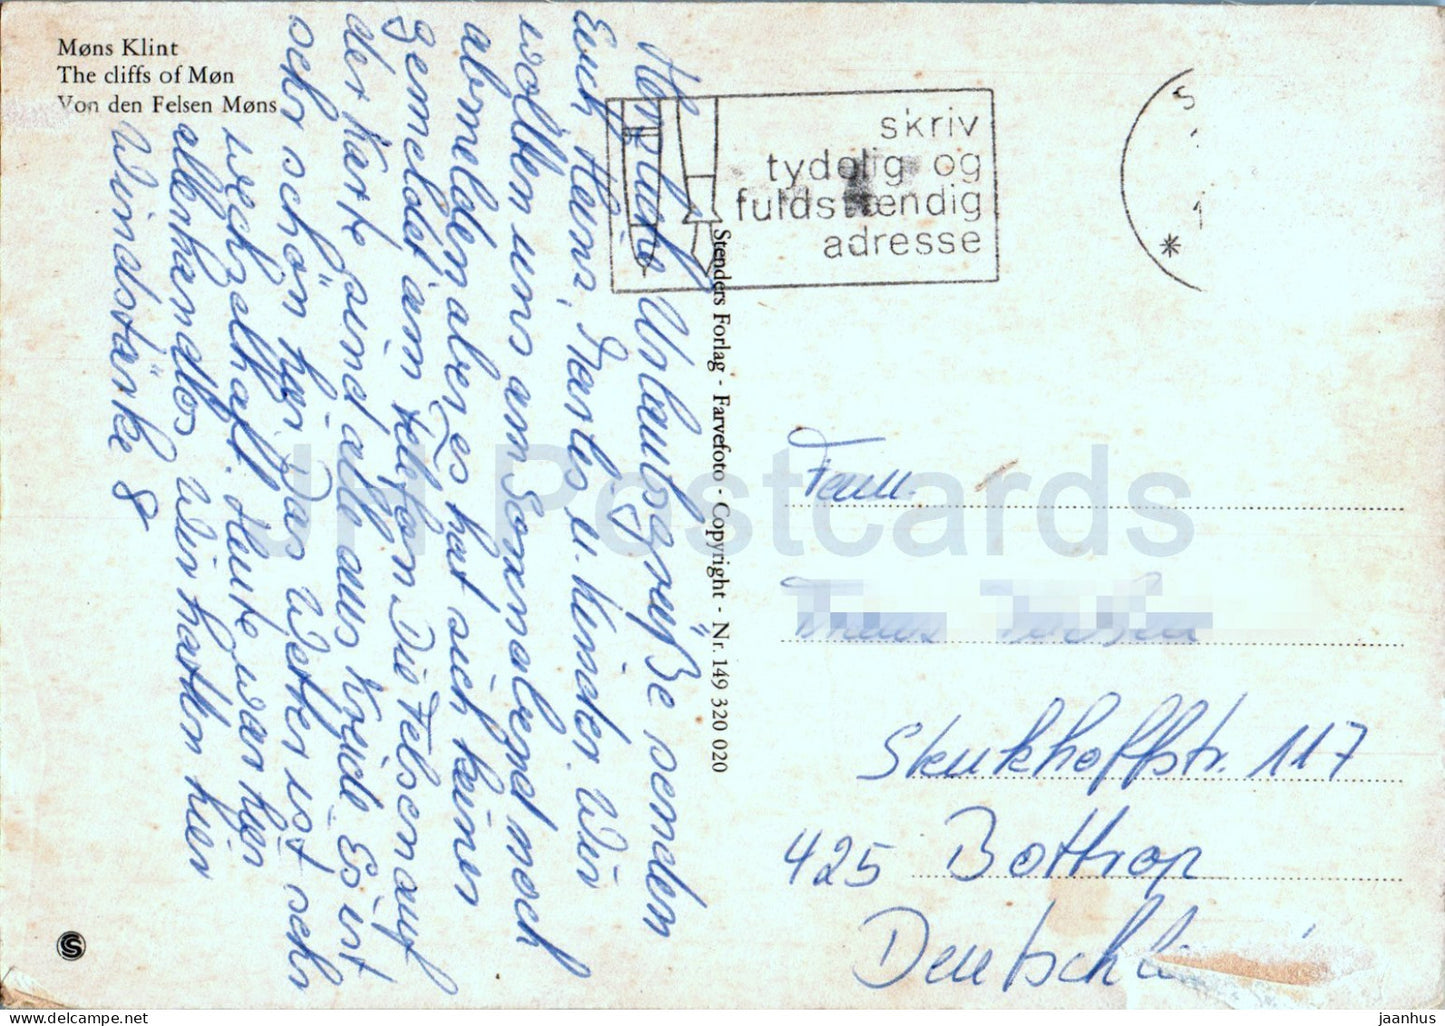 Møns Klint
The cliffs of Møn
Von den Felsen Møns
Herzliche Urlaubsgrüße senden
Euch Heinz, u. Kinder. Wir
wollten uns am Sonnabend noch
abmelden aber Es hat sich keiner
gemeldet am telefon. Die Felsen auf
der Karte sind alle aus Kreide. Es ist
sehr schön hier Das Wetter ist sehr
wechzelhaft. Heute war hier
allerhand los Wir hatten hier
Windstärke 8
Stenders Forlag - Farvefoto - Copyright - Nr. 149 320 020
skriv
tydelig og
fuldstændig
adresse
Fam.
117
425 Bottrop
JH Postcards
jaanhus